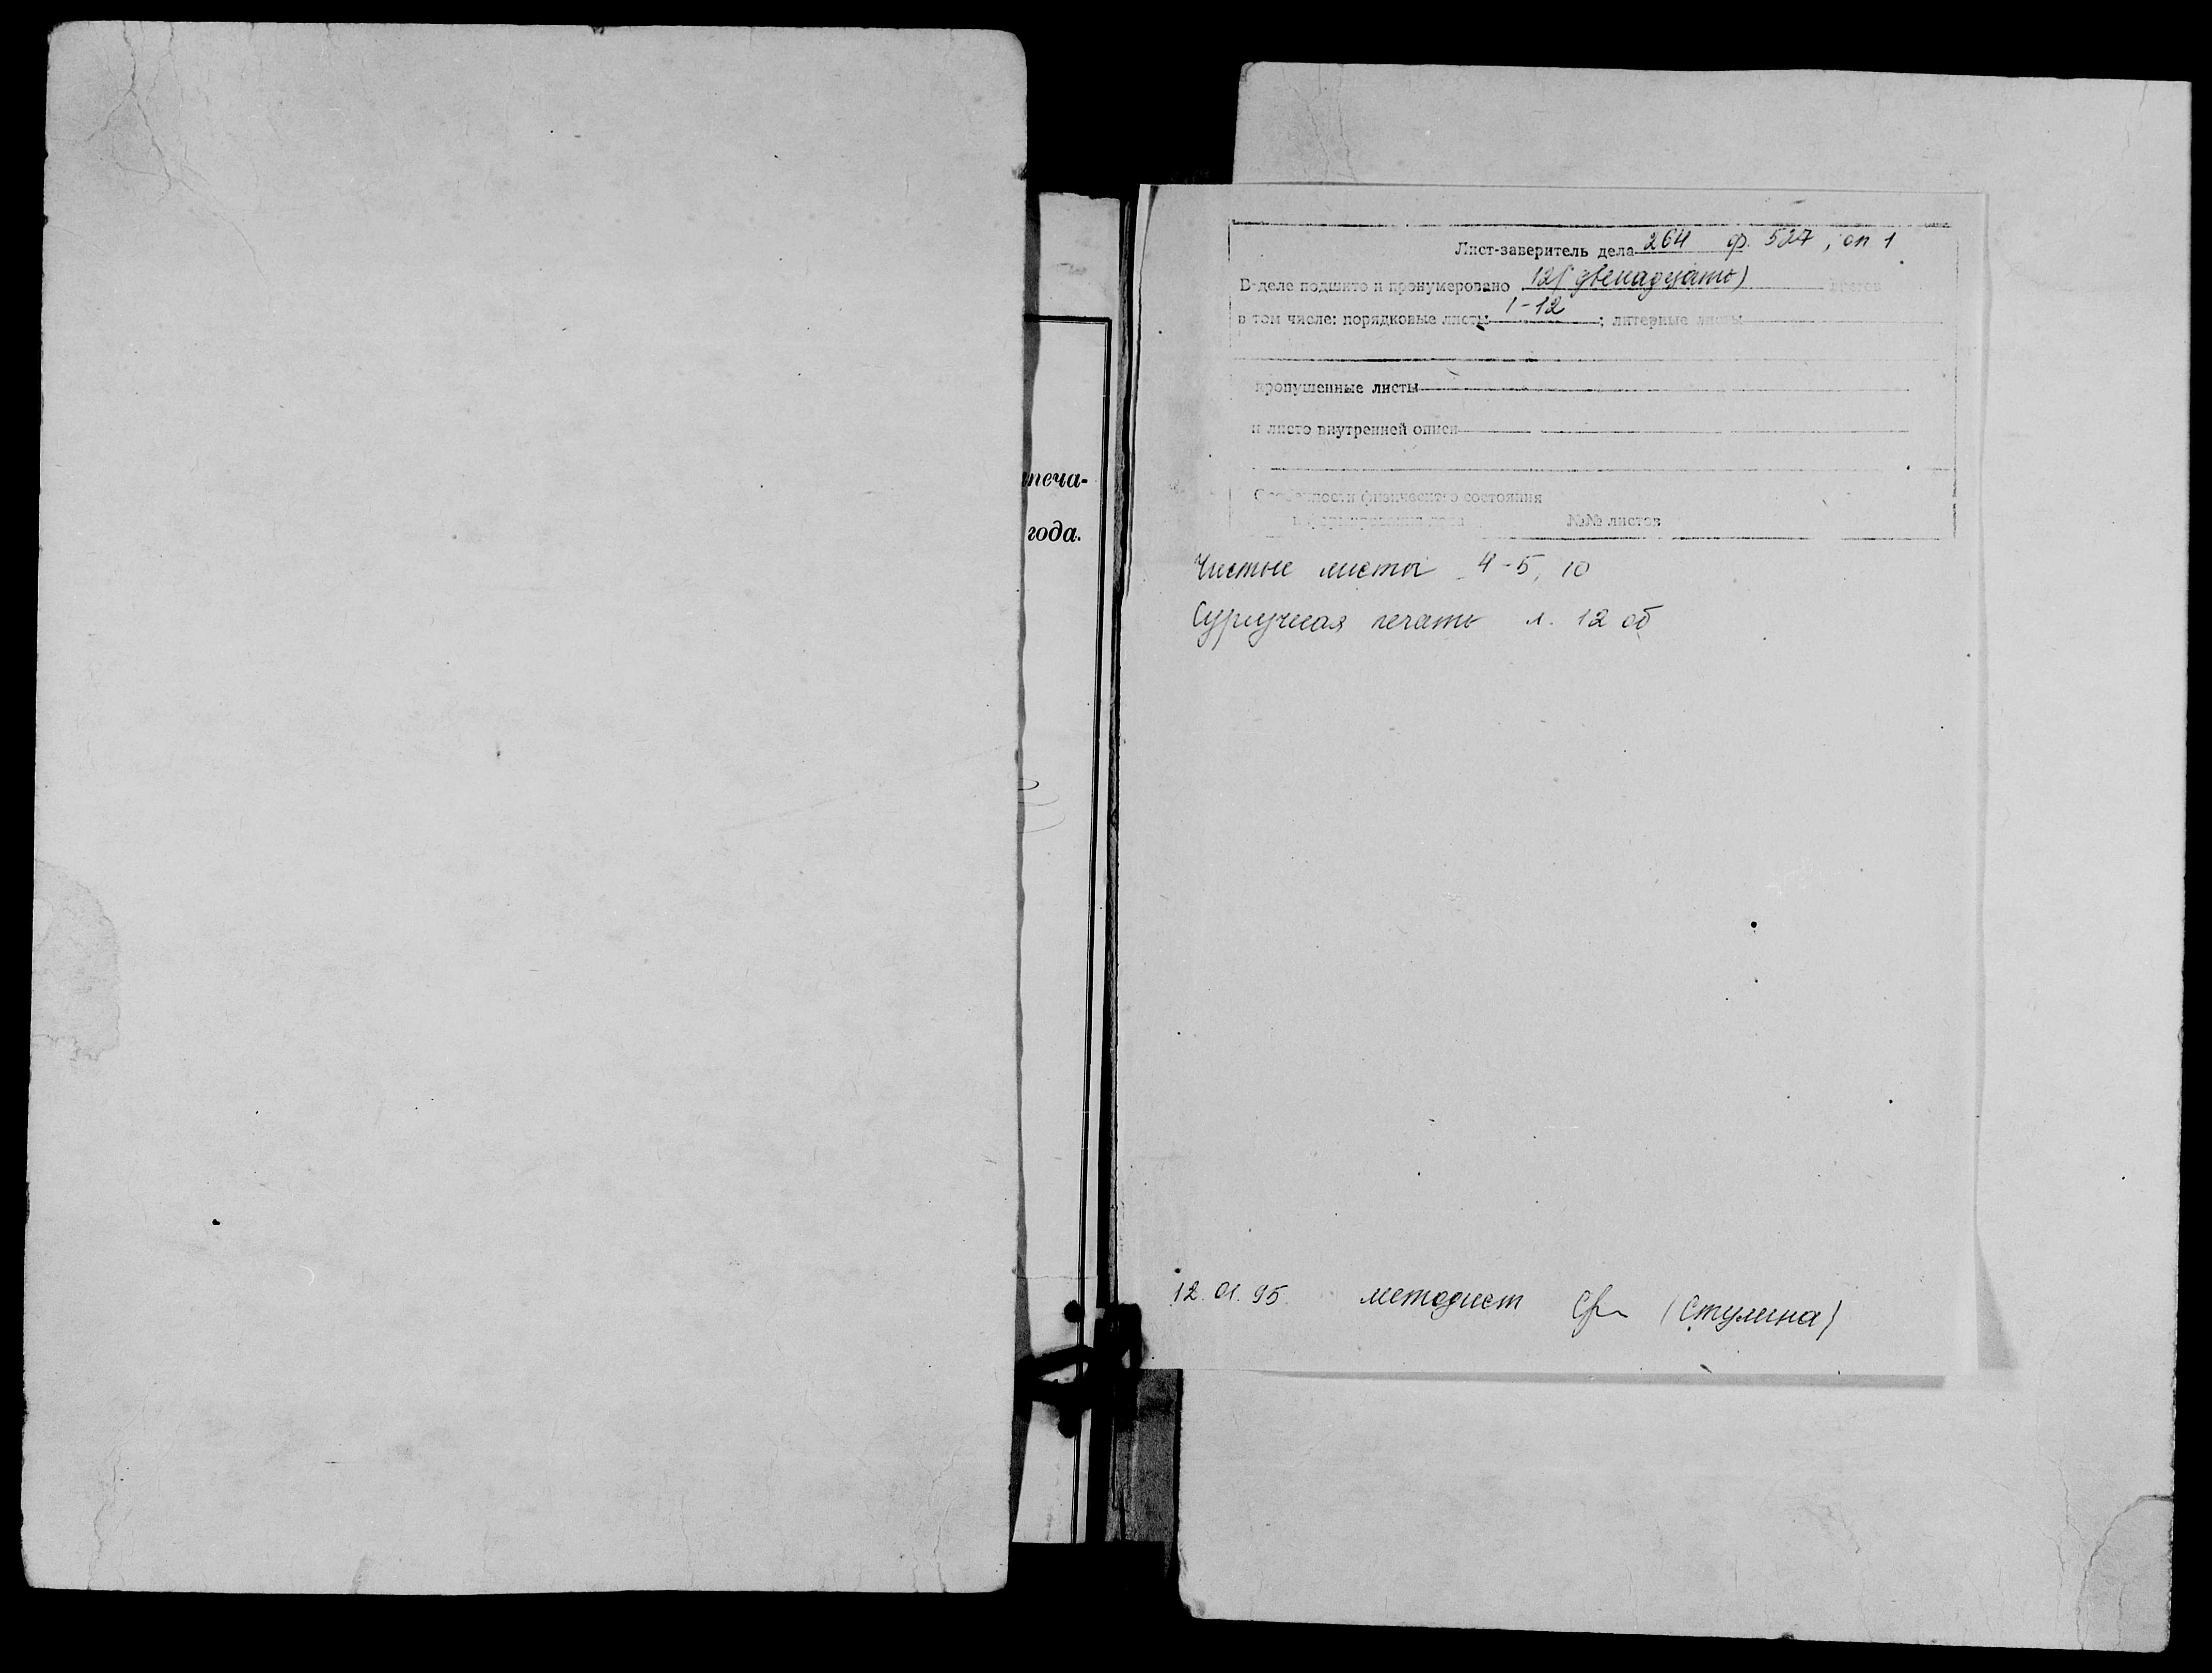 печа-
года.
Лист-заверитель дела 264 ф. 527, оп 1
В деле подшито и пронумеровано 12 (двенадцать) листов
в том числе: порядковые листы 1-12; литерные листы
пропущенные листы
и листо внутренней описи
Особенности физического состояния
и формирования дела №№ листов
Чистые листы 4-5, 10
Сургучная печать л. 12 об
12.01.95. методист (Стулина)